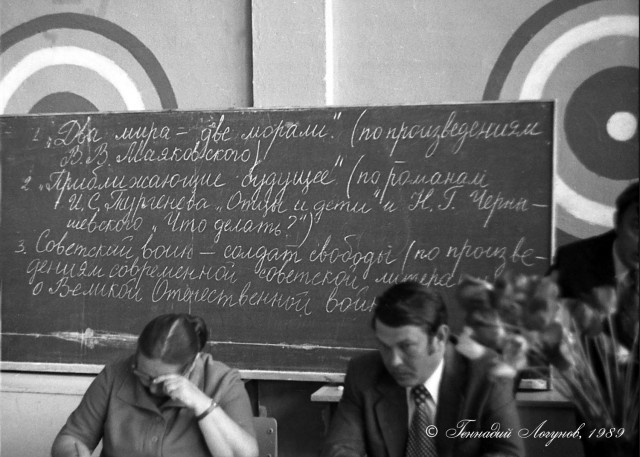 1. „Два мира – две морали." (по произведениям
В.В. Маяковского)
2. „Приближающие будущее" (по романам
И.С. Тургенева „Отцы и дети" и Н.Г. Черны-
шевского „Что делать?")
3. Советский воин – солдат свободы (по произве-
дениям современной советской литера
о Великой Отечественной вой
© Геннадий Логунов, 1989